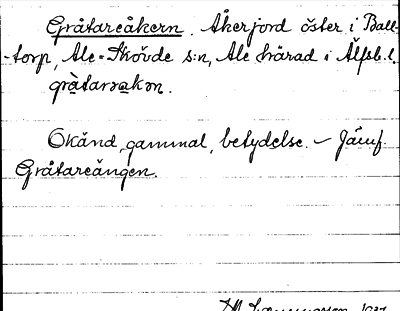 Gråtareåkern. Åkerjord öster i Ball-
torp, Ale-Skövde s:n, Ale härad i Älfsb. l.
gràtarɔakɔn.
Okänd, gammal, betydelse. – Jämf.
Gråtareängen.